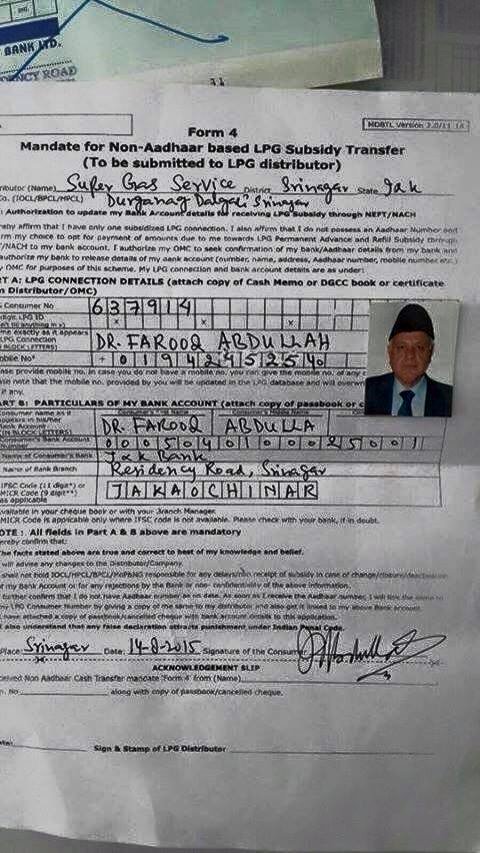 BANK LTD.
NCY ROAD
Form 4
MDBTL Version 2.0/11 14
Mandate for Non-Aadhaar based LPG Subsidy Transfer
(To be submitted to LPG distributor)
ributor (Name) Super Gas Service District Srinagar State J&k
Co. (IOCL/BPCL/HPCL) Durganag Dalgali Srinagar
Authorization to update my Bank Account details for receiving LPG Subsidy through NEFT/NACH
eby affirm that I have only one subsidized LPG connection. I also affirm that I do not possess an Aadhaar Number and
rm my choice to opt for payment of amounts due to me towards LPG Permanent Advance and Refill Subsidy through
/NACH to my bank account. I authorize my OMC to seek confirmation of my bank/Aadhaar details from my bank and
authorize my bank to release details of my bank account (number, name, address, Aadhaar number, mobile number etc.)
OMC for purposes of this scheme. My LPG connection and bank account details are as under:
RT A: LPG CONNECTION DETAILS (attach copy of Cash Memo or DGCC book or certificate
m Distributor/OMC)
Consumer No 637914
digit LPG ID
me exactly as it appears
LPG Connection
BLOCK LETTERS) DR. FAROOQ ABDULLAH
obile No* + 01942452540
ase provide mobile no. in case you do not have a mobile no. you can give the mobile no. of any
ase note that the mobile no. provided by you will be updated in the LPG database and will overwr
if any.
ART B: PARTICULARS OF MY BANK ACCOUNT (attach copy of passbook or c
Consumer name as it
appears in his/her
Bank Account
IN BLOCK LETTERS) DR FAROOQ ABDULLA
Consumer's Bank Account
Number 0005040100025001
Name of Consumer's Bank J&k Bank
Name of Bank Branch Residency Road, Srinagar
IFSC Code (11 digit*) or
MICR Code (9 digit**)
as applicable JAKAOCHINAR
vailable in your cheque book or with your Branch Manager.
MICR Code is applicable only where IFSC code is not available. Please check with your bank, if in doubt.
OTE : All fields in Part A & B above are mandatory
ereby confirm that:
The facts stated above are true and correct to best of my knowledge and belief.
will advise any changes to the Distributor/Company.
shall not hold IOCL/HPCL/BPCL/ responsible for any delays/non receipt of subsidy in case of change/closure/
of my Bank Account or for any rejections by the Bank or non- confidentiality of the above information.
further confirm that I do not have Aadhaar number as on date. As soon as I receive the Aadhaar number, I will link the same to
my LPG Consumer Number by giving a copy of the same to my distributor and also get it linked to my above Bank account.
have attached a copy of passbook/cancelled cheque with bank account details to this application.
also understand that any false declaration attracts punishment under Indian Penal Code.
Place: Srinagar Date: 14-8-2015 Signature of the Consumer
ACKNOWLEDGEMENT SLIP
ceived Non Aadhaar Cash Transfer mandate 'Form 4' from (Name)
n. No. along with copy of passbook/cancelled cheque.
Sign & Stamp of LPG Distributor